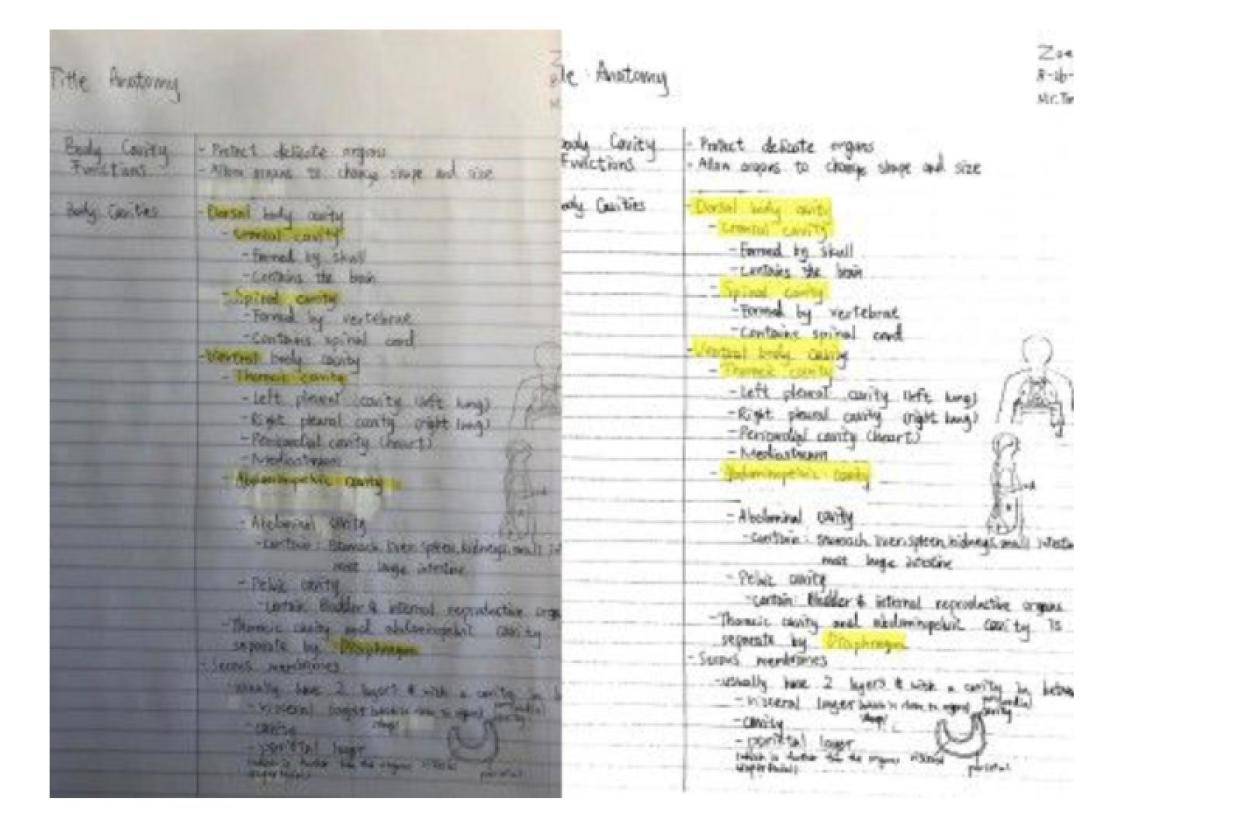 Title Anatomy
Body Cavity - Protect delicate organs
Functions - Allow organs to change shape and size
Body Cavities - Dorsal body cavity
- Cranial cavity
- Formed by skull
- Contains the brain
- Spinal cavity
- Formed by vertebrae
- Contains spinal cord
- Ventral body cavity
- Thoracic cavity
- Left pleural cavity (left lung)
- Right pleural cavity (right lung)
- Pericardial cavity (heart)
- Mediastinum
- Abdominopelvic cavity
- Abdominal cavity
- contain: Stomach, liver, spleen, kidneys, small
most large intestine
- Pelvic cavity
- contain: Bladder & internal reproductive
- Thoracic cavity and abdominopelvic cavity
separate by Diaphragm
- Serous membranes
- usually have 2 layers & with a cavity in
- visceral layer
- cavity
- parietal layer
parietal
le: Anatomy
Zoe
8-16-
Mr.
ody Cavity - Protect delicate organs
Functions - Allow organs to change shape and size
ody Cavities - Dorsal body cavity
- Cranial cavity
- Formed by skull
- Contains the brain
- Spinal cavity
- Formed by vertebrae
- Contains spinal cord
- Ventral body cavity
- Thoracic cavity
- Left pleural cavity (left lung)
- Right pleural cavity (right lung)
- Pericardial cavity (heart)
- Mediastinum
- Abdominopelvic cavity
- Abdominal cavity
- contain: Stomach, liver, spleen, kidneys, small
most large intestine
- Pelvic cavity
- contain: Bladder & internal reproductive organs
- Thoracic cavity and abdominopelvic cavity is
separate by Diaphragm
- Serous membranes
- usually have 2 layers & with a cavity in
- visceral layer
cavity
- cavity
- parietal layer
parietal